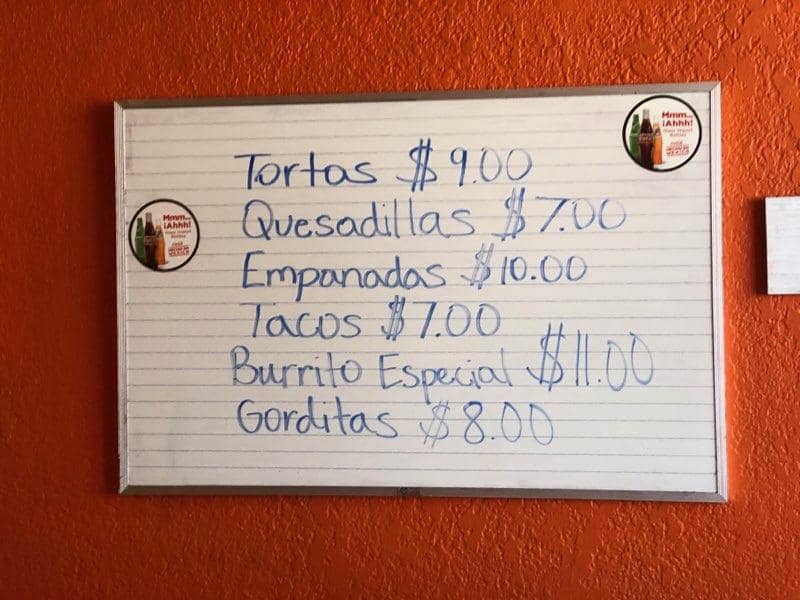 Mmm...
¡Ahhh!
Tortas $9.00
Mmm...
¡Ahhh!
Quesadillas $7.00
Empanadas $10.00
Tacos $7.00
Burrito Especial $11.00
Gorditas $8.00